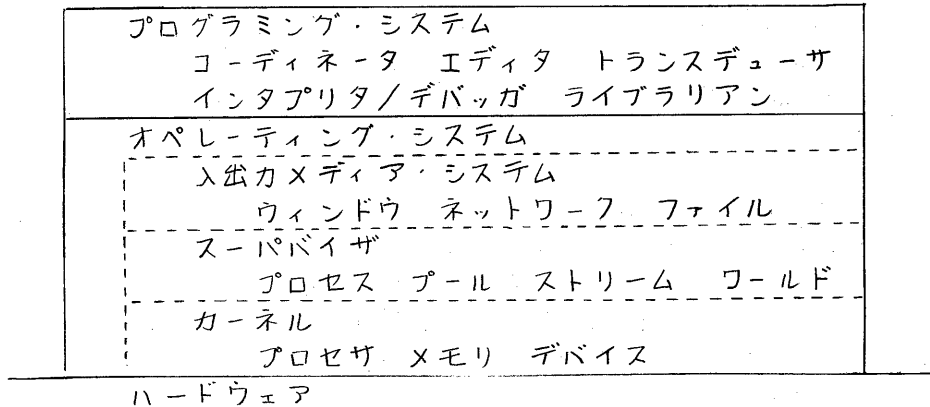 プログラミング・システム
コーディネータ エディタ トランスデューサ
インタプリタ/デバッガ ライブラリアン
オペレーティング・システム
入出力メディア・システム
ウィンドウ ネットワーク ファイル
スーパバイザ
プロセス プール ストリーム ワールド
カーネル
プロセサ メモリ デバイス
ハードウェア